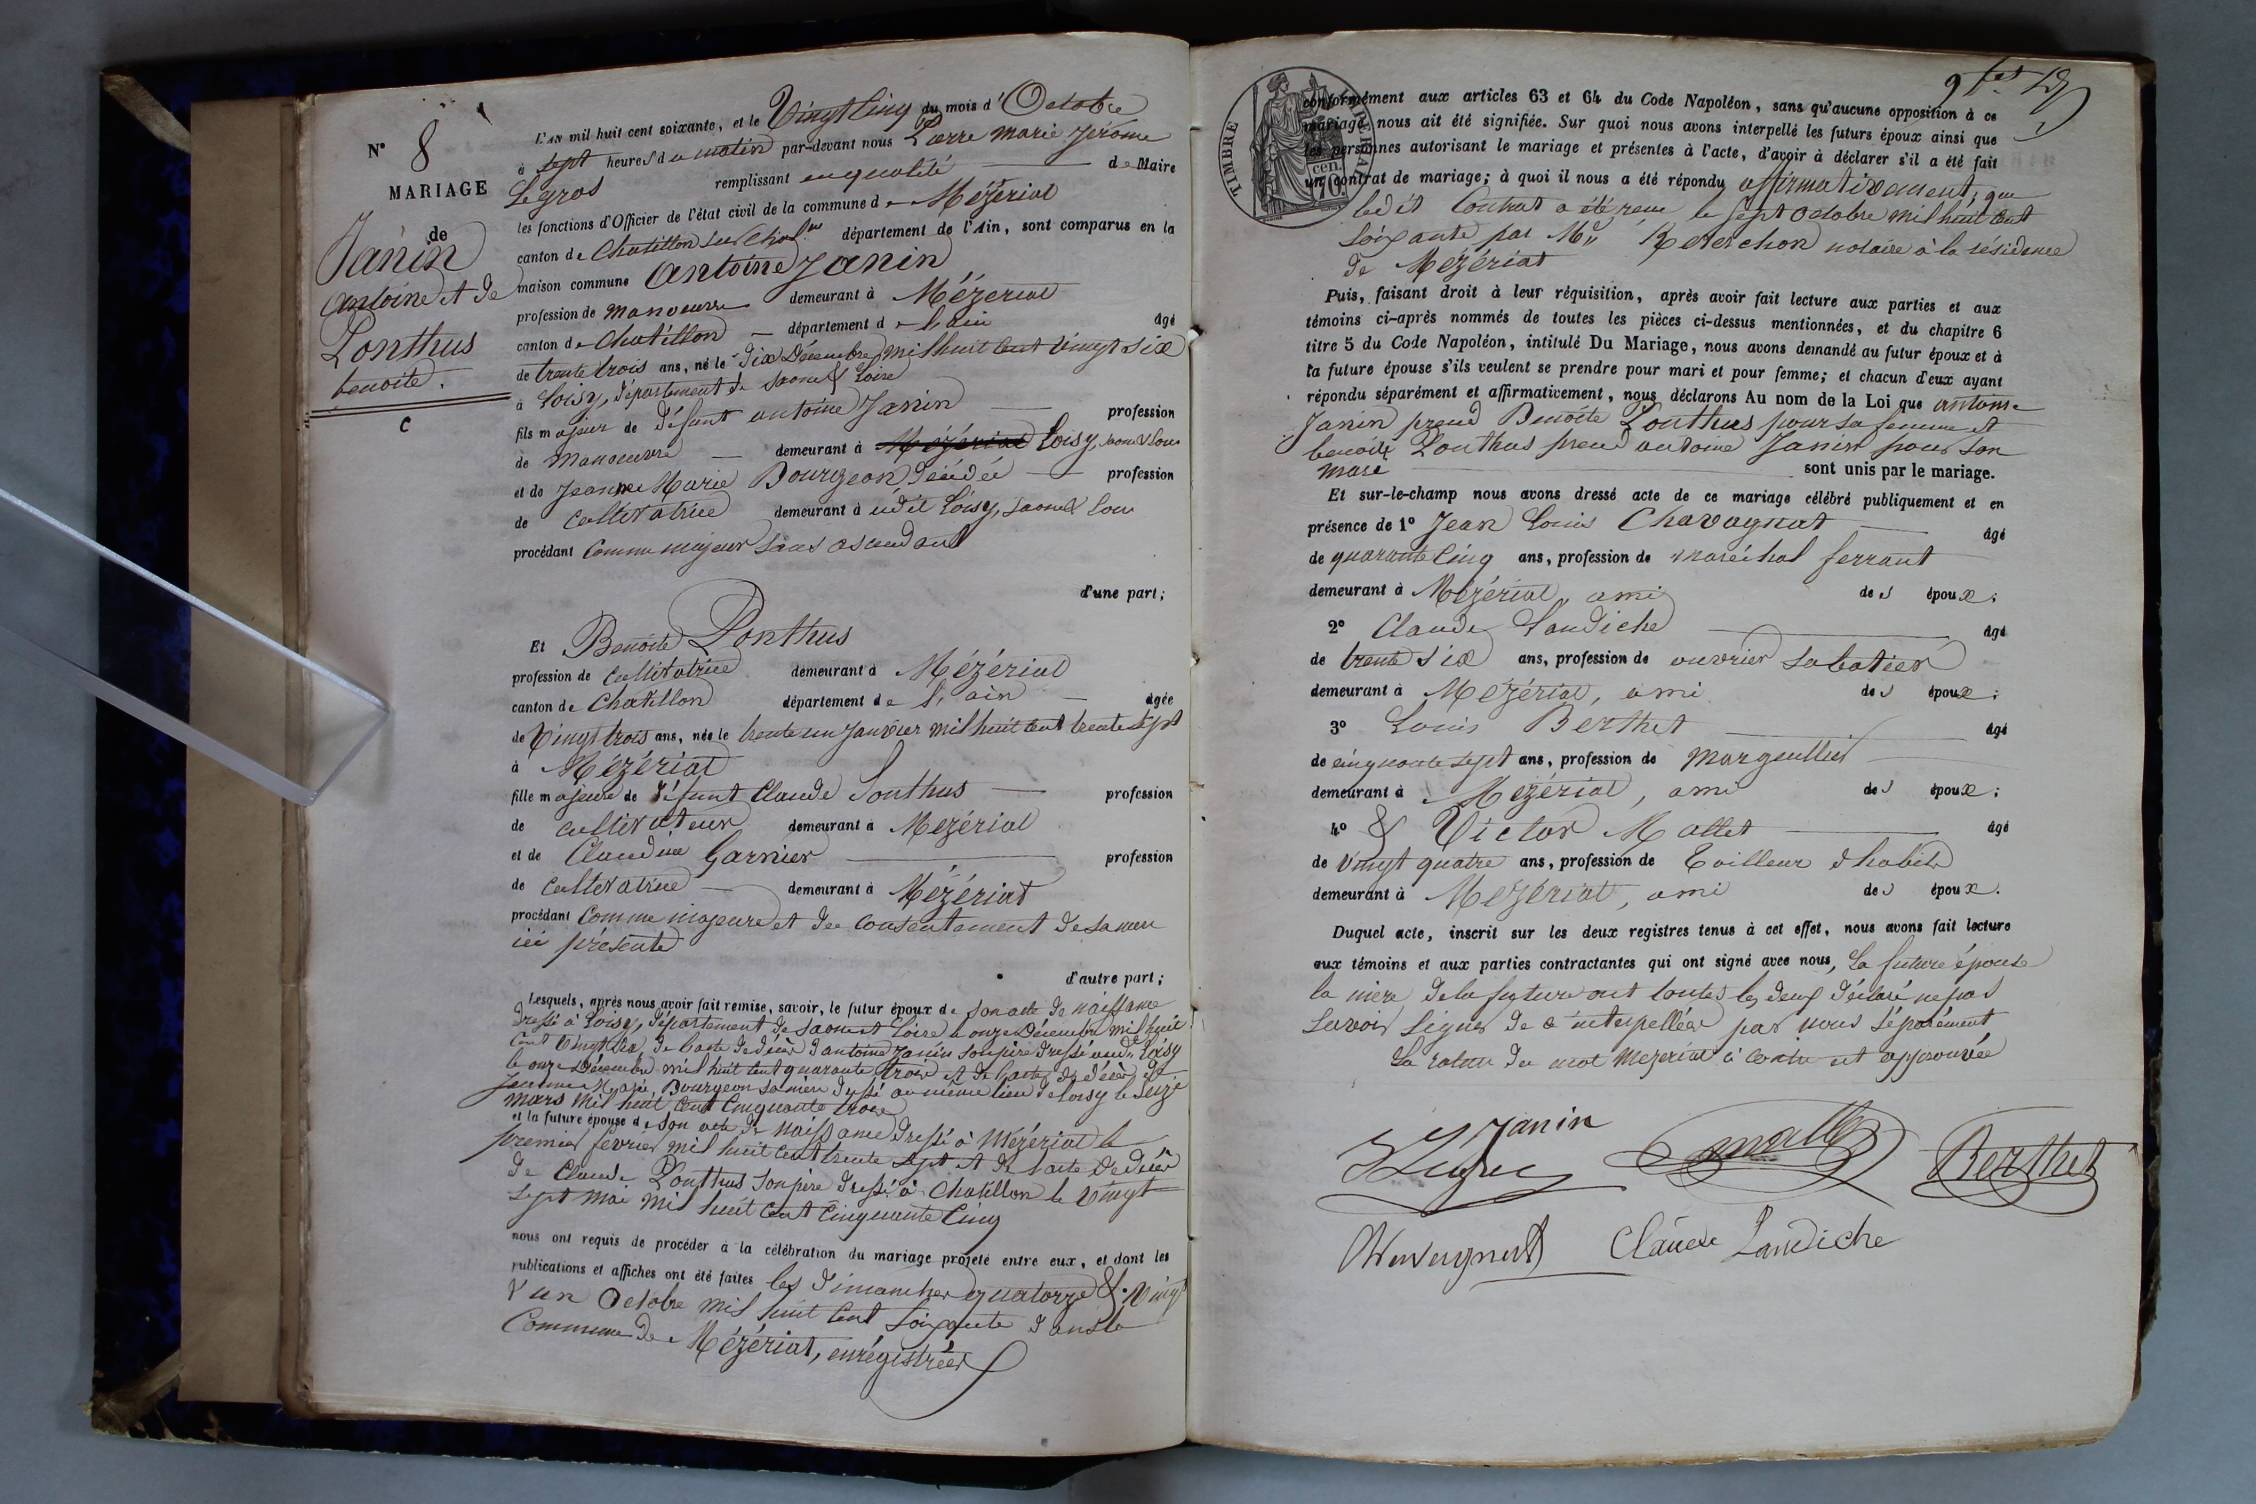 N° 8
MARIAGE
de
Janin
antoine et de
Ponthus
benoite.
L'AN mil huit cent soixante, et le Vingt Cinq du mois d'Octobre
à sept heures du matin par-devant nous Pierre Marie Jérôme
Legros remplissant en qualité de Maire
les fonctions d'Officier de l'état civil de la commune de Mézériat
canton de Chatillon sur Chal.ne département de l'Ain, sont comparus en la
maison commune Antoine Janin
profession de manoeuvre demeurant à Mézériat
canton de Chatillon département de l'ain âgé
de trente trois ans, né le dix Décembre mil huit cent vingt six
à Loisy, département de saone & Loire
fils majeur de défunt antoine Janin profession
de manoeuvre demeurant à Mézériat Loisy, saone & Loire
et de Jeanne Marie Bourgeon décédée profession
de Cultivatrice demeurant à dit Loisy, saone & Loire
procédant Comme majeur sans ascendant
d'une part;
Et Benoite Ponthus
profession de Cultivatrice demeurant à Mézériat
canton de Chatillon département de l'ain âgée
de Vingt trois ans, née le trente un Janvier mil huit cent trente sept
à Mézériat
fille majeure de défunt Claude Ponthus profession
de cultivateur demeurant à Mézériat
et de Claudine Garnier profession
de Cultivatrice demeurant à Mézériat
procédant Comme majeure et du consentement de sa mère
ici présente
d'autre part;
Lesquels, après nous avoir fait remise, savoir, le futur époux de son acte de naissance
dressé à Loisy, département de Saone et Loire le onze Décembre mil huit
cent vingt six, de l'acte de décès d'antoine Janin son père dressé Loisy
le onze Décembre mil huit cent quarante trois et de l'acte de décès de
Jeanne Marie Bourgeon sa mère dressé au même lieu de Loisy le seize
mars mil huit cent cinquante trois
et la future épouse de son acte de naissance dressé à Mézériat le
premier février mil huit cent trente sept et de l'acte de décès
de Claude Ponthus son père dressé à Chatillon le vingt
sept mai mil huit cent cinquante cinq
nous ont requis de procéder à la célébration du mariage projeté entre eux, et dont les
publications et affiches ont été faites les dimanches quatorze & vingt
& un Octobre mil huit cent soixante dans la
Commune de Mézériat, enrégistrées
TIMBRE IMPÉRIAL
70 cen.
conformément aux articles 63 et 64 du Code Napoléon, sans qu'aucune opposition à ce
mariage nous ait été signifiée. Sur quoi nous avons interpellé les futurs époux ainsi que
les personnes autorisant le mariage et présentes à l'acte, d'avoir à déclarer s'il a été fait
un contrat de mariage; à quoi il nous a été répondu affirmativement, que
ledit Contrat a été reçu le sept octobre mil huit cent
soixante par M.e Reverchon notaire à la résidence
de Mézériat
Puis, faisant droit à leur réquisition, après avoir fait lecture aux parties et aux
témoins ci-après nommés de toutes les pièces ci-dessus mentionnées, et du chapitre 6
titre 5 du Code Napoléon, intitulé Du Mariage, nous avons demandé au futur époux et à
la future épouse s'ils veulent se prendre pour mari et pour femme; et chacun d'eux ayant
répondu séparément et affirmativement, nous déclarons Au nom de la Loi que antoine
Janin prend Benoite Ponthus pour sa femme et
benoite Ponthus prend antoine Janin pour son
mari sont unis par le mariage.
Et sur-le-champ nous avons dressé acte de ce mariage célébré publiquement et en
présence de 1° Jean Louis Chavagnat âgé
de quarante Cinq ans, profession de maréchal ferrant
demeurant à Mézériat, ami des époux;
2° Claude Landiche âgé
de trente six ans, profession de ouvrier sabotier
demeurant à Mézériat, ami des époux;
3° Louis Berthet âgé
de cinquante sept ans, profession de Marguillier
demeurant à Mézériat, ami des époux;
4° & Victor Mallet âgé
de Vingt quatre ans, profession de Tailleur d'habits
demeurant à Mézériat, ami des époux.
Duquel acte, inscrit sur les deux registres tenus à cet effet, nous avons fait lecture
aux témoins et aux parties contractantes qui ont signé avec nous, la future épouse
la mère de la future ont toutes les deux déclaré ne pas
savoir signer de ce interpellées par nous séparément
La rature du mot Mézériat ci contre est approuvée
Janin
Legros Mallet Berthet
Chavagnat Claude Landiche